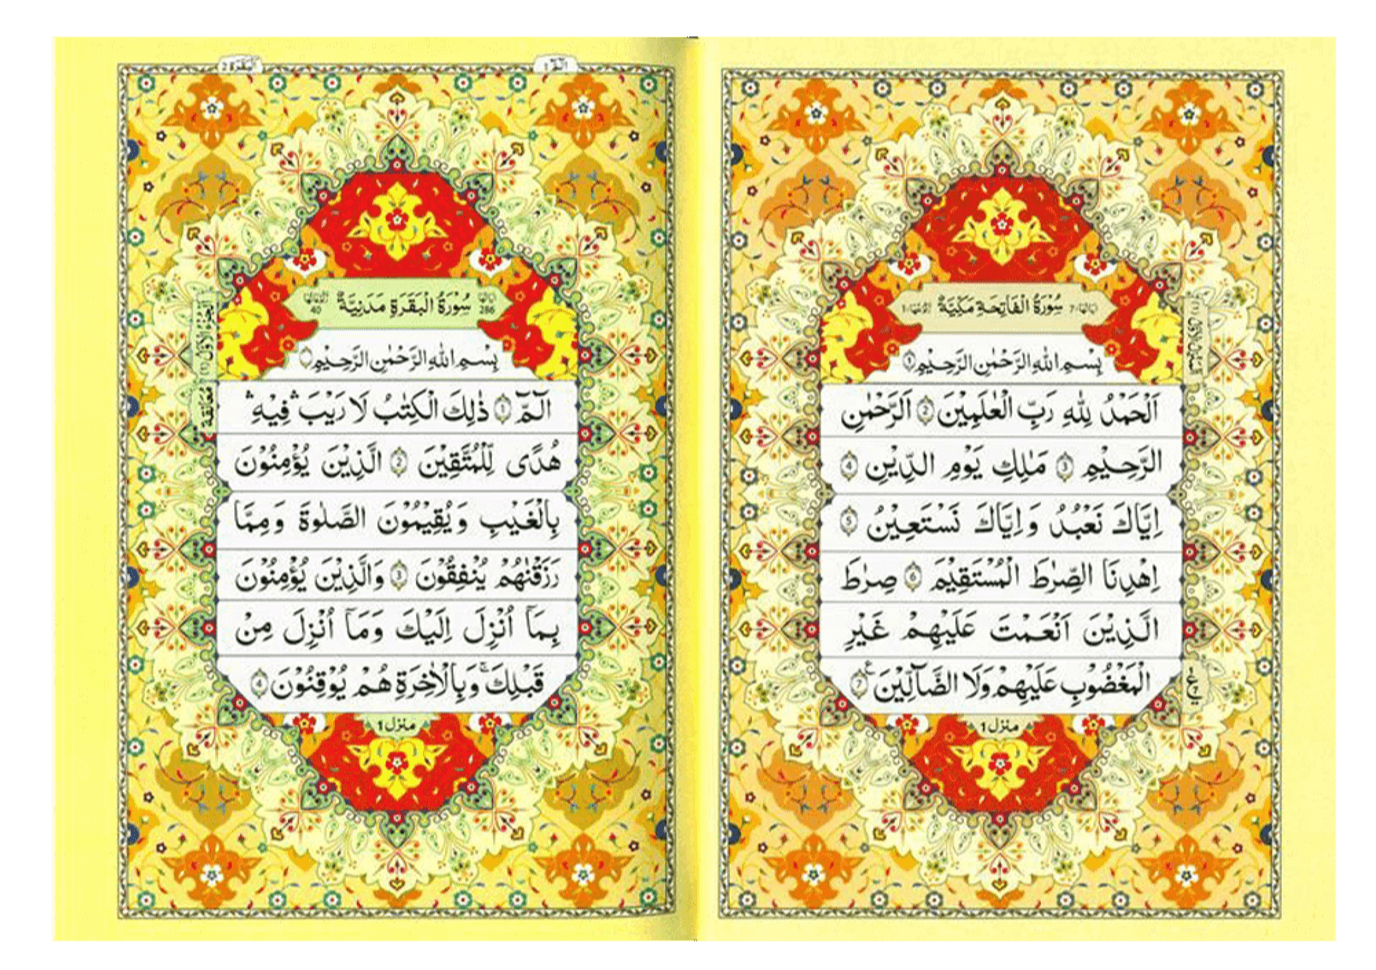 سُوْرَةُ الْفَاتِحَةِ مَكِّيَّةٌ
بِسْمِ اللهِ الرَّحْمٰنِ الرَّحِيْمِ ۝١
اَلْحَمْدُ لِلّٰهِ رَبِّ الْعٰلَمِيْنَ ۝٢ اَلرَّحْمٰنِ
الرَّحِيْمِ ۝٣ مٰلِكِ يَوْمِ الدِّيْنِ ۝٤
اِيَّاكَ نَعْبُدُ وَاِيَّاكَ نَسْتَعِيْنُ ۝٥
اِهْدِنَا الصِّرٰطَ الْمُسْتَقِيْمَ ۝٦ صِرٰطَ
الَّذِيْنَ اَنْعَمْتَ عَلَيْهِمْ غَيْرِ
الْمَغْضُوْبِ عَلَيْهِمْ وَلَا الضَّآلِّيْنَ ۝٧
منزل ١
الٓمّٓ ١
الْبَقَرَة ٢
سُوْرَةُ الْبَقَرَةِ مَدَنِيَّةٌ
286
40
بِسْمِ اللهِ الرَّحْمٰنِ الرَّحِيْمِ
الٓمّٓ ۝١ ذٰلِكَ الْكِتٰبُ لَا رَيْبَ ۛ فِيْهِ ۛ
هُدًى لِّلْمُتَّقِيْنَ ۝٢ الَّذِيْنَ يُؤْمِنُوْنَ
بِالْغَيْبِ وَيُقِيْمُوْنَ الصَّلٰوةَ وَمِمَّا
رَزَقْنٰهُمْ يُنْفِقُوْنَ ۝٣ وَالَّذِيْنَ يُؤْمِنُوْنَ
بِمَآ اُنْزِلَ اِلَيْكَ وَمَآ اُنْزِلَ مِنْ
قَبْلِكَ ۚ وَبِالْاٰخِرَةِ هُمْ يُوْقِنُوْنَ ۝٤
منزل ١